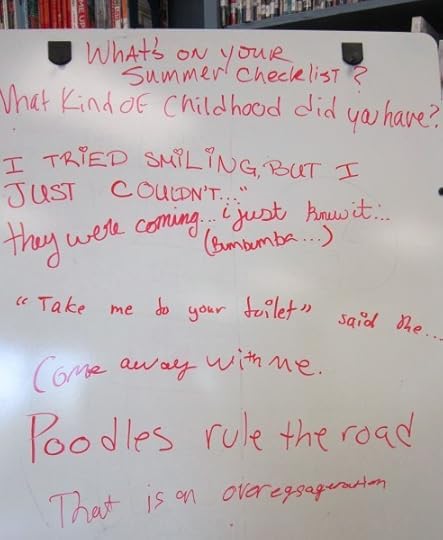 What's on your
Summer Checklist?
What Kind OF Childhood did you have?
I TRIED SMILING, BUT I
JUST COULDN'T..."
they were coming... i just knew it...
(Bumbumba...)
"Take me to your toilet" said the...
Come away with me.
Poodles rule the road
That is an overegsageration